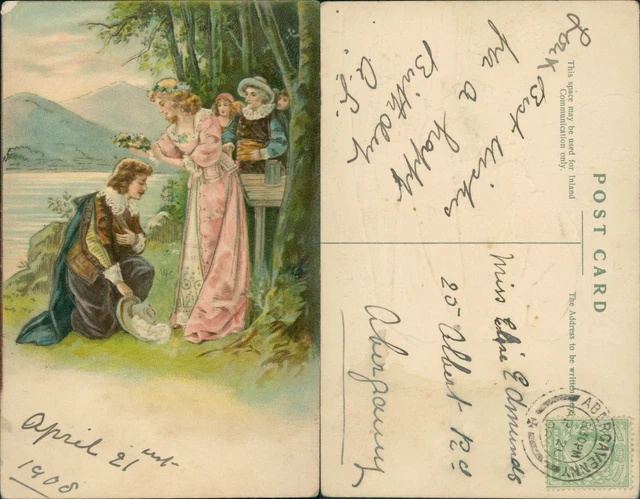 April 21st
1908
POST CARD
This space may be used for Inland
Communication only.
The Address to be written here
Best Wishes
for a happy
Birthday
Miss Elsie Edmunds
25 Albert Rd
Abergavny
ABERGAVENNY